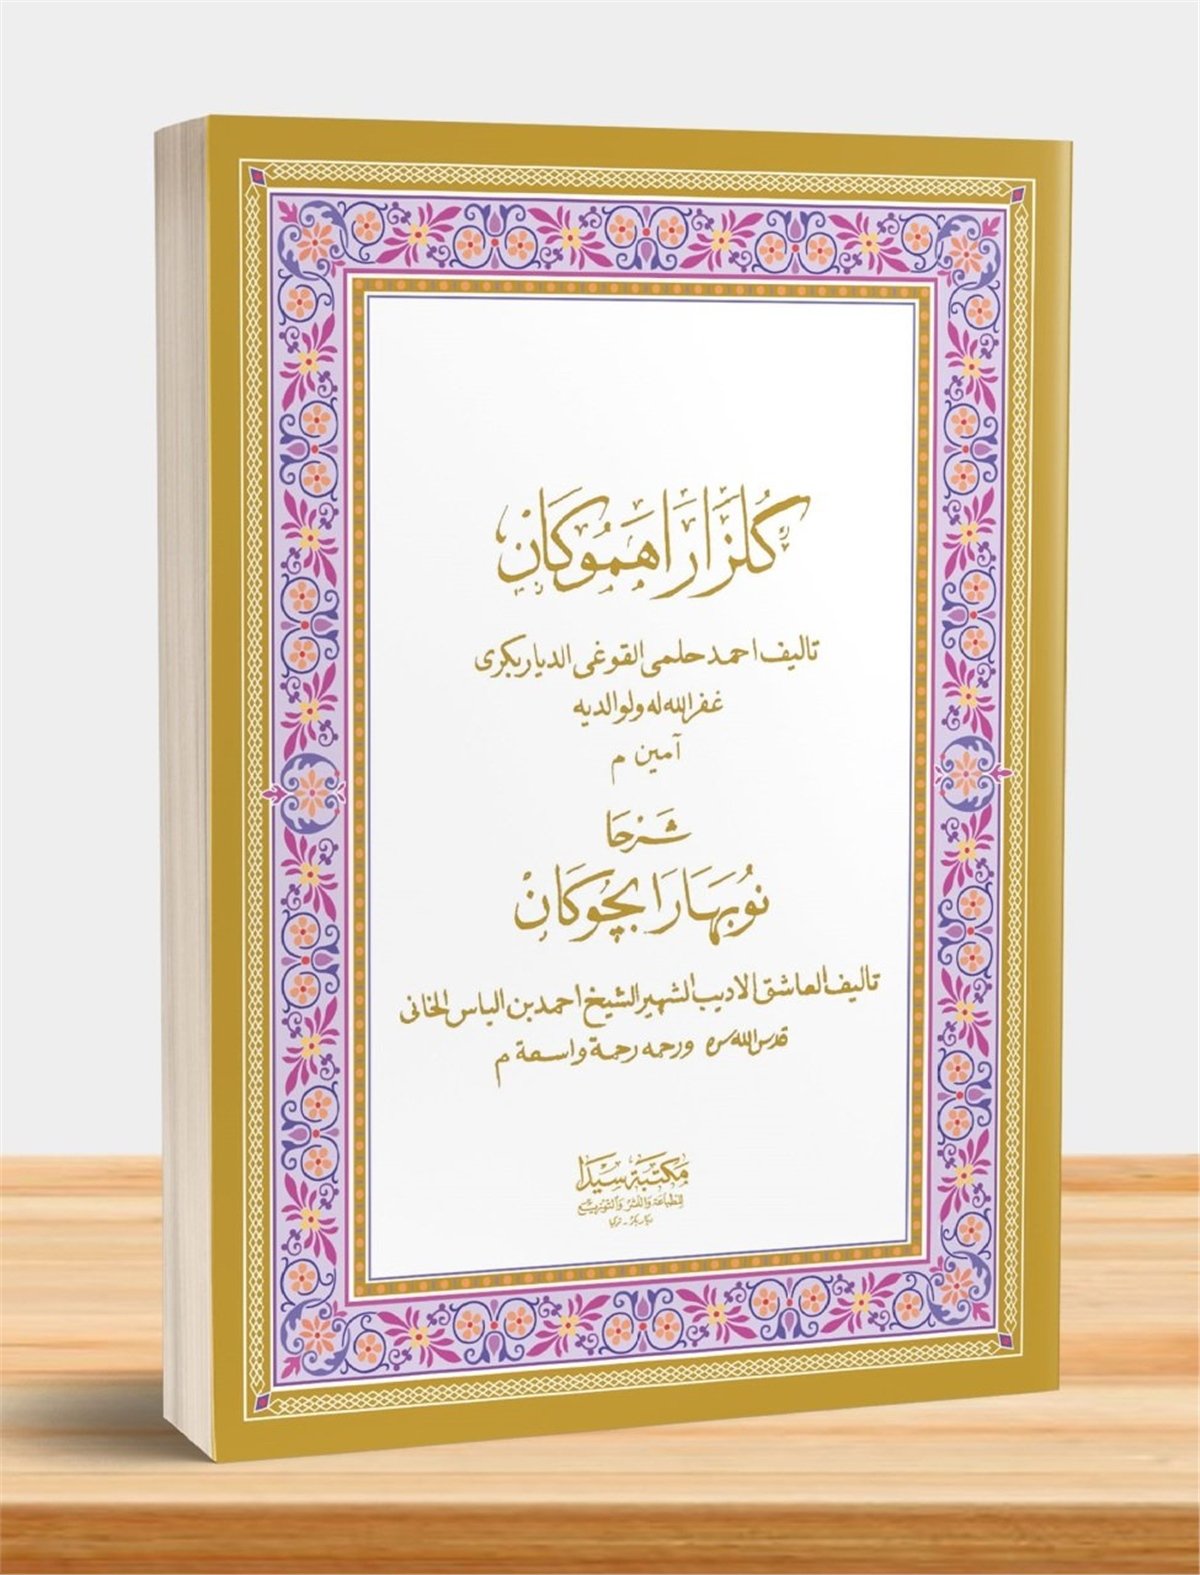 كُلزَارَا هَمُوكَانْ
تاليف احمد حلمى القوغى الدياربكرى
غفرالله له ولوالديه
آمين م
شَرْحَا
نُوبهَارَا بچُوكَانْ
تاليف العاشق الاديب الشهير الشيخ احمد بن الياس الخانى
قدس الله سره ورحمه رحمة واسعة م
مَكتَبَة سَيْدَا
للطبَاعَة وَالنَّشْر وَالتَّوزيع
ديار بكر - تركيا